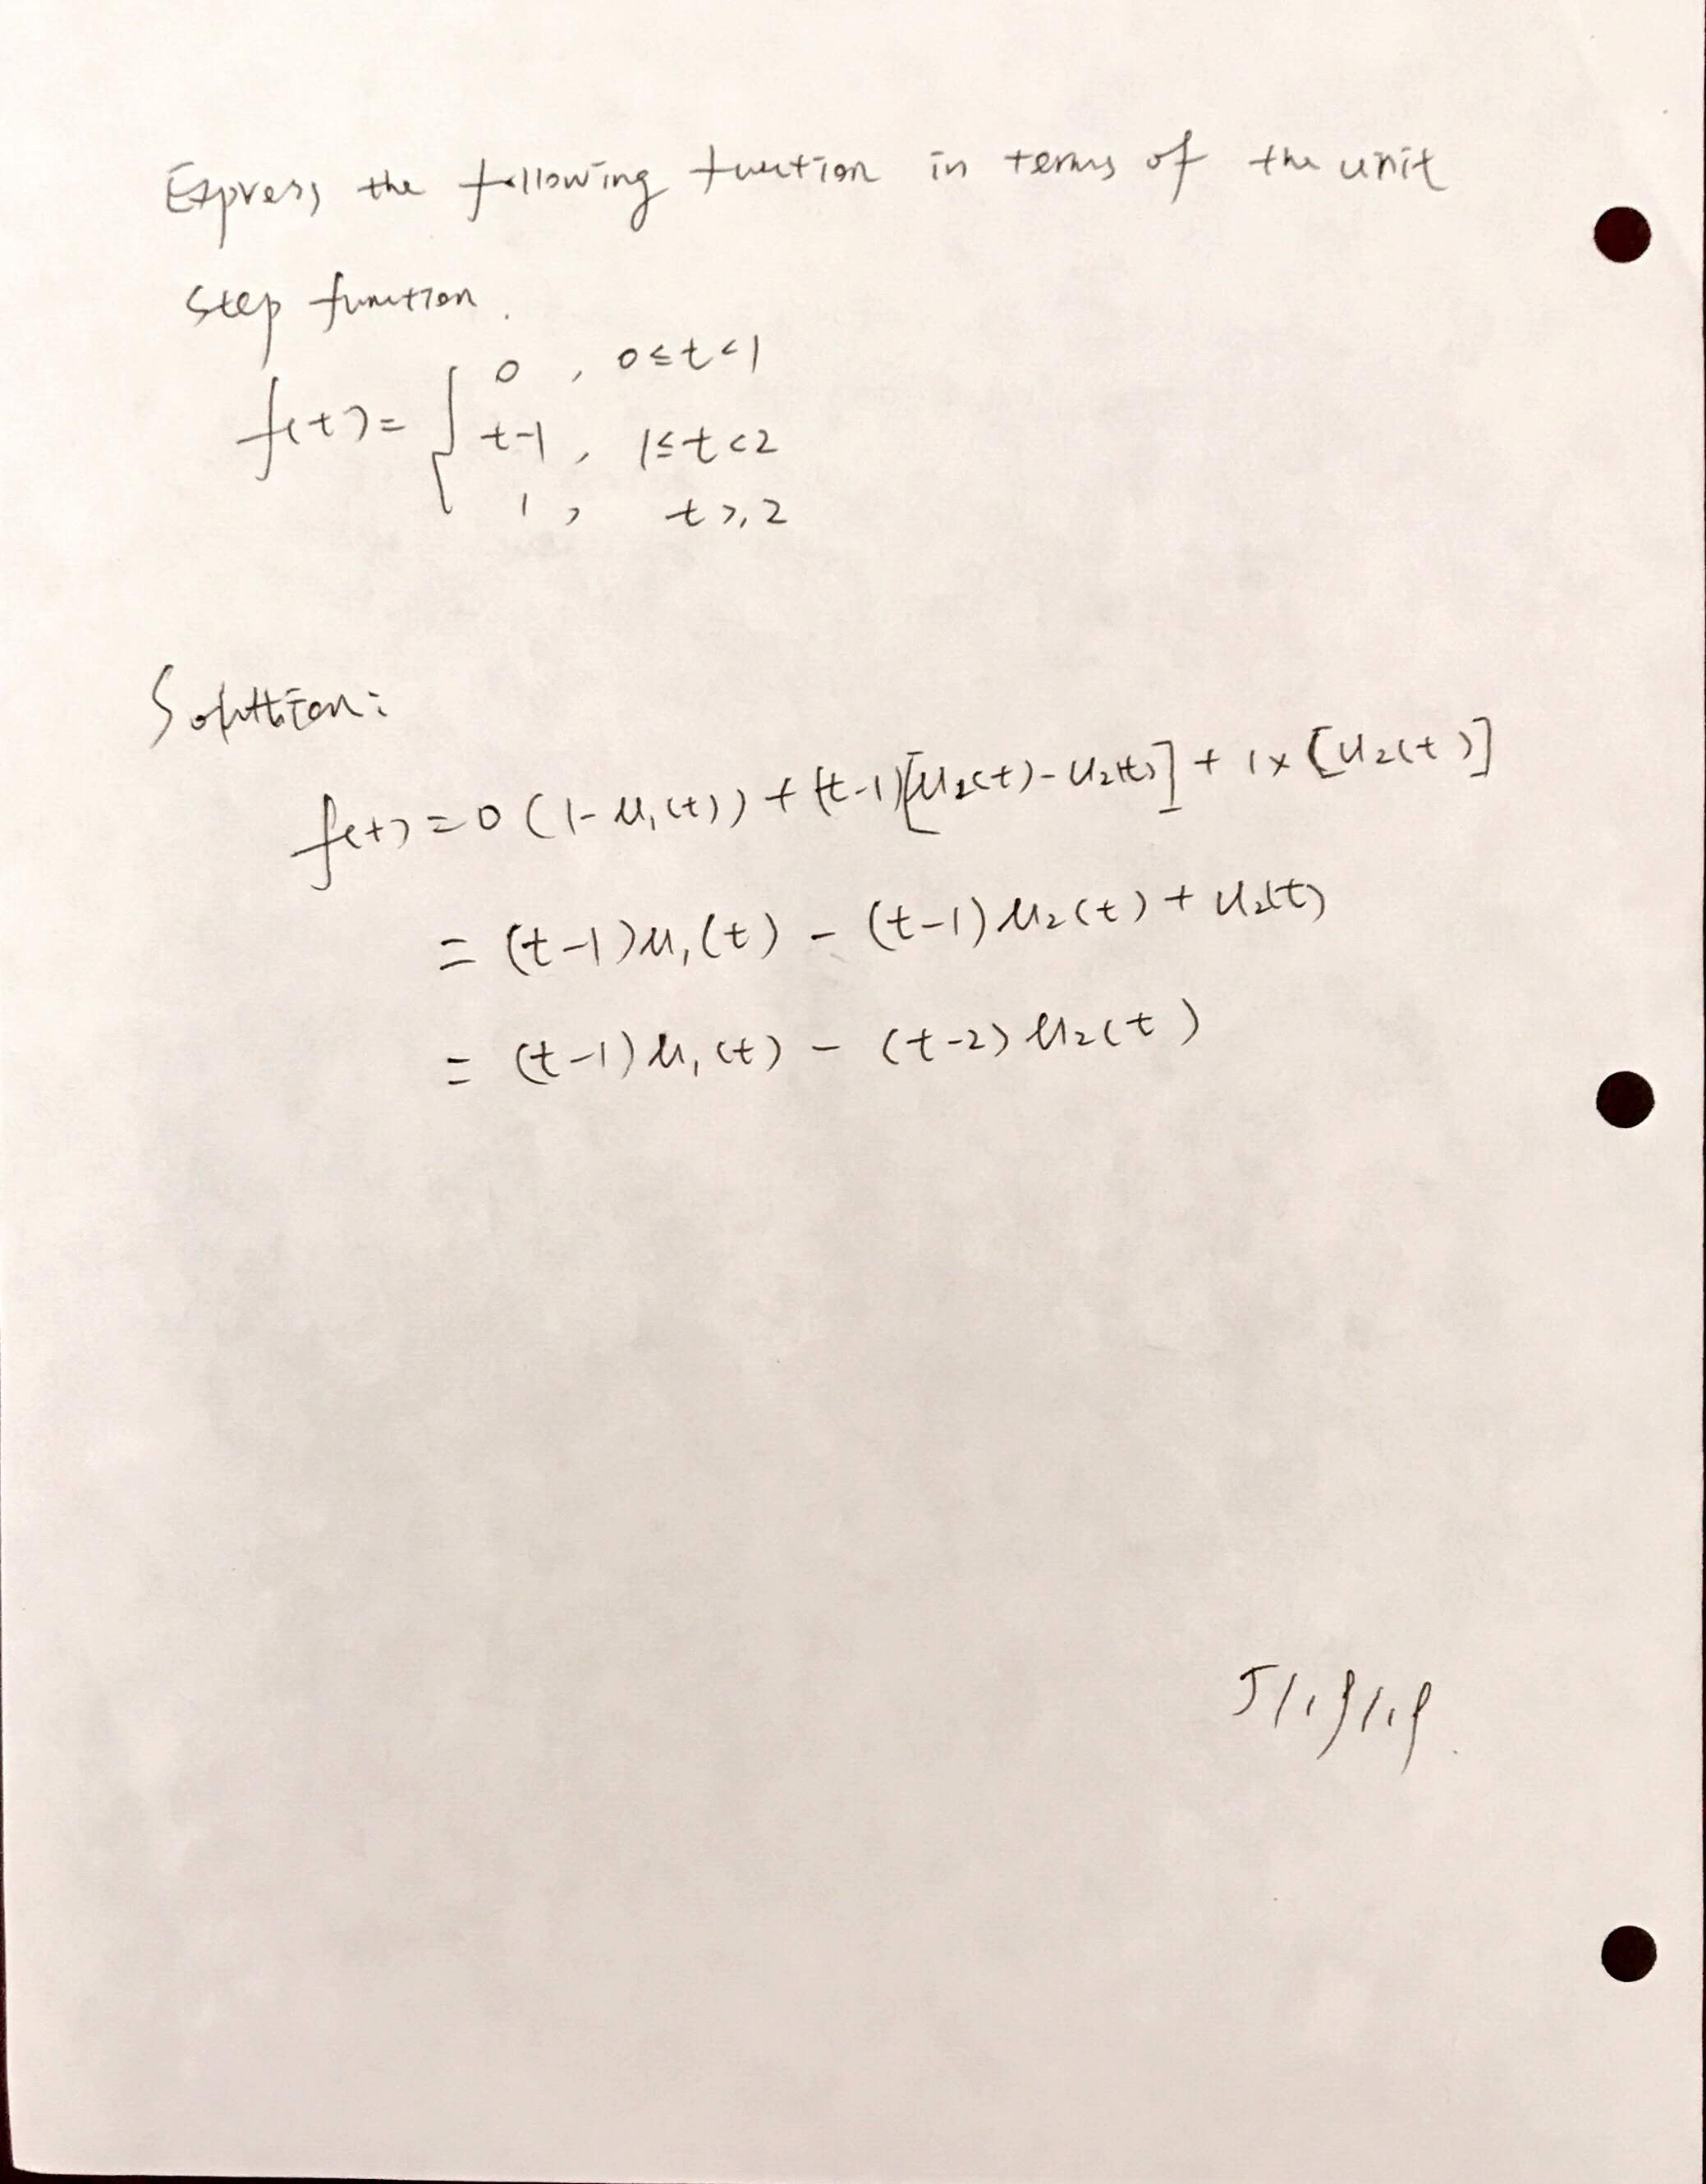 Express the following function in terms of the unit
step function.
f(t) = { 0 , 0 ≤ t < 1
t-1 , 1 ≤ t < 2
1 , t ≥ 2
Solution:
f(t) = 0 (1 - u₁(t)) + (t-1)[u₂(t) - u₂(t)] + 1 × [u₂(t)]
= (t-1)u₁(t) - (t-1)u₂(t) + u₂(t)
= (t-1)u₁(t) - (t-2)u₂(t)